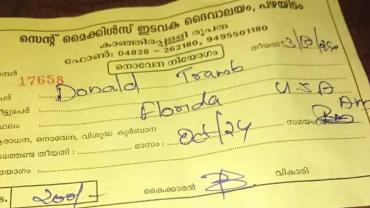 സെന്റ് മൈക്കിൾസ് ഇടവക ദൈവാലയം, പഴയിടം
കാഞ്ഞിരപ്പള്ളി രൂപത
ഫോൺ: 04828 - 262180, 9495501180
നൊവേന നിയോഗം
നമ്പർ 17658 തീയതി
പേര് Donald Tramb
വീട്ടുപേര്
സ്ഥലം Florida U.S.A
ആരാധന, നൊവേന, വിശുദ്ധ കുർബാന
തീയതി: മാസം: Oct/24 സമയം
നിയോഗം:
Rs. 200/- കൈക്കാരൻ വികാരി